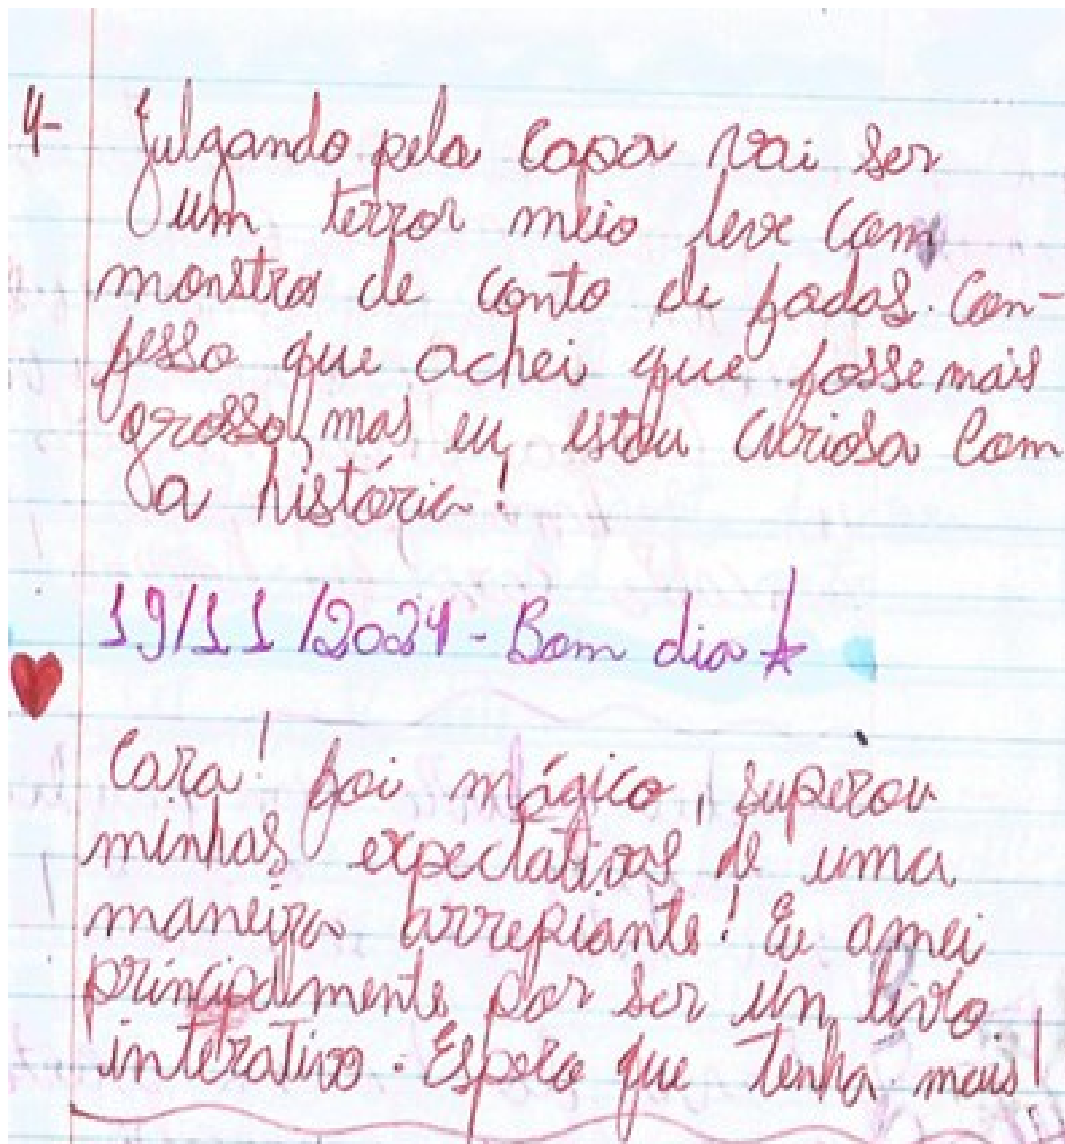 4- Julgando pela capa vai ser
um terror meio leve com
monstros de conto de fadas. Con-
fesso que achei que fosse mais
grosso, mas eu estou curiosa com
a história!
19/11/2024 - Bom dia
Cara! foi mágico, superou
minhas expectativas de uma
maneira arrepiante! Eu amei
principalmente por ser um livro
interativo. Espero que tenha mais!